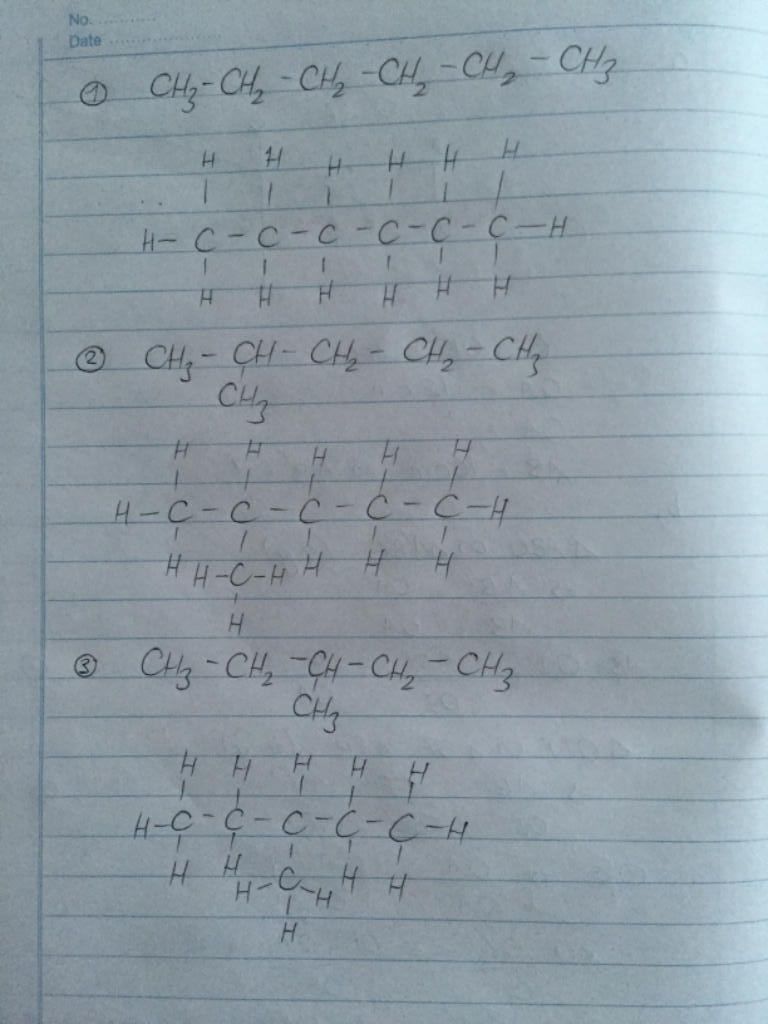 No. ............
Date ........................
① CH₃-CH₂-CH₂-CH₂-CH₂-CH₃
H H H H H H
H-C-C-C-C-C-C-H
H H H H H H
② CH₃-CH-CH₂-CH₂-CH₃
CH₃
H H H H H
H-C-C-C-C-C-H
H H-C-H H H H
H
③ CH₃-CH₂-CH-CH₂-CH₃
CH₃
H H H H H
H-C-C-C-C-C-H
H H H-C-H H H
H